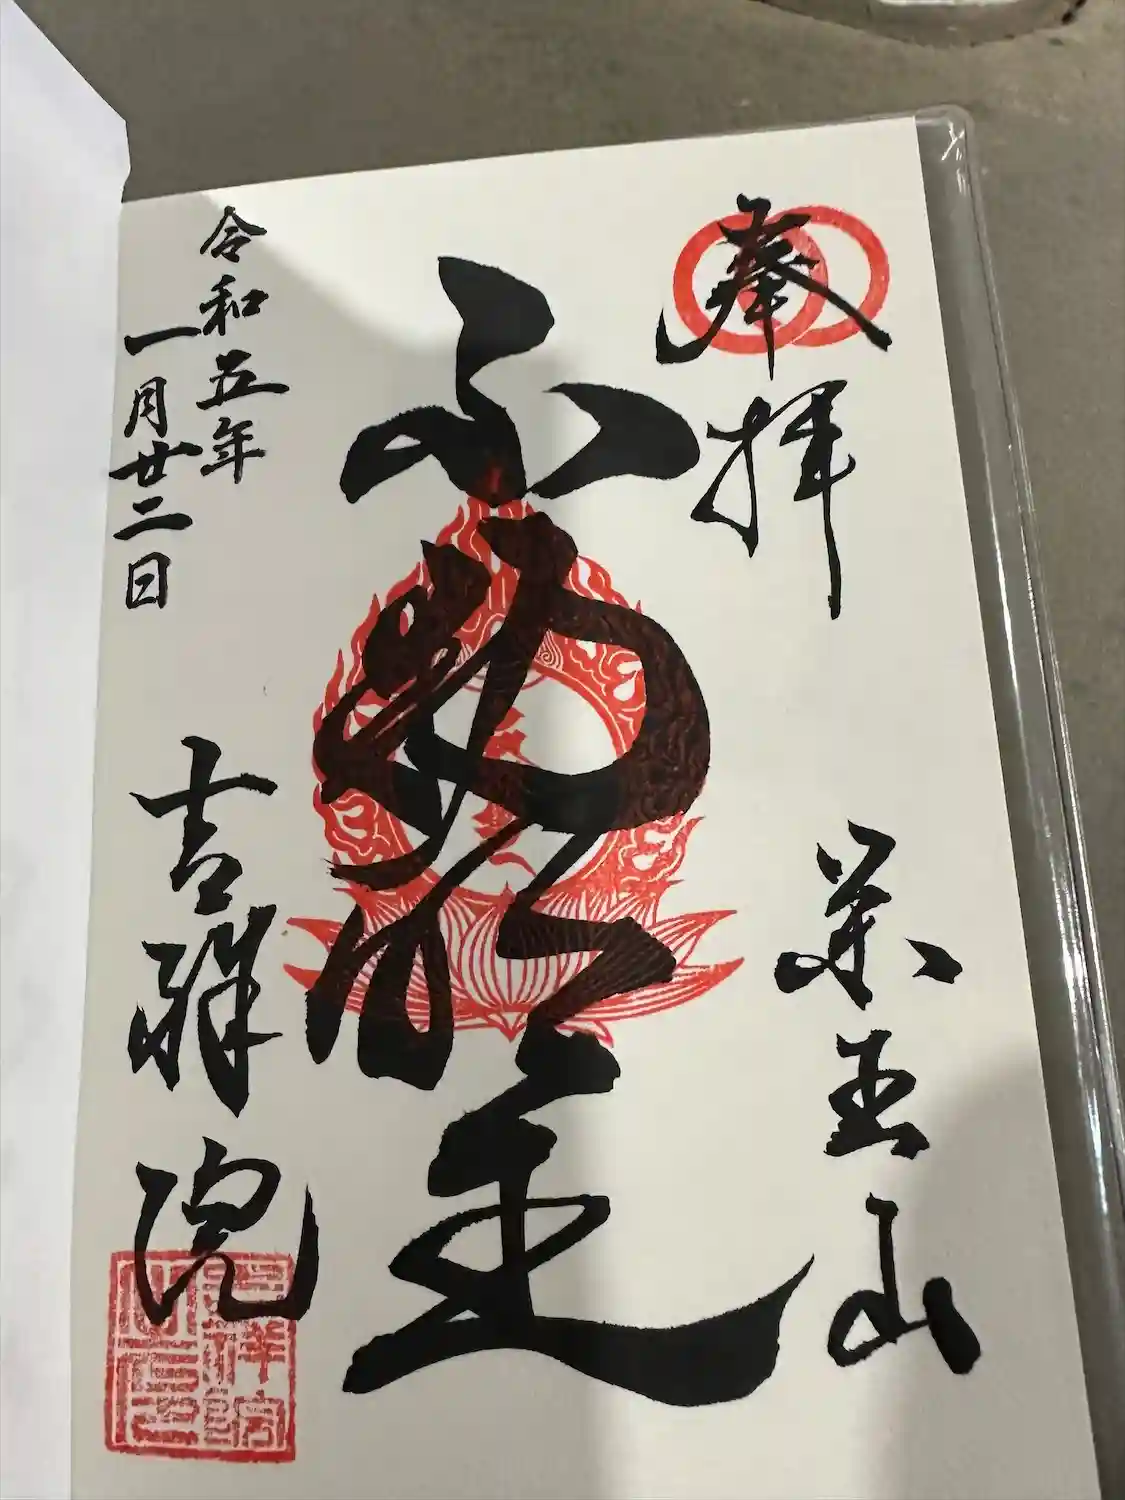 奉拝
薬王山
不動明王
令和五年
一月廿二日
吉祥院
吉祥院
之印